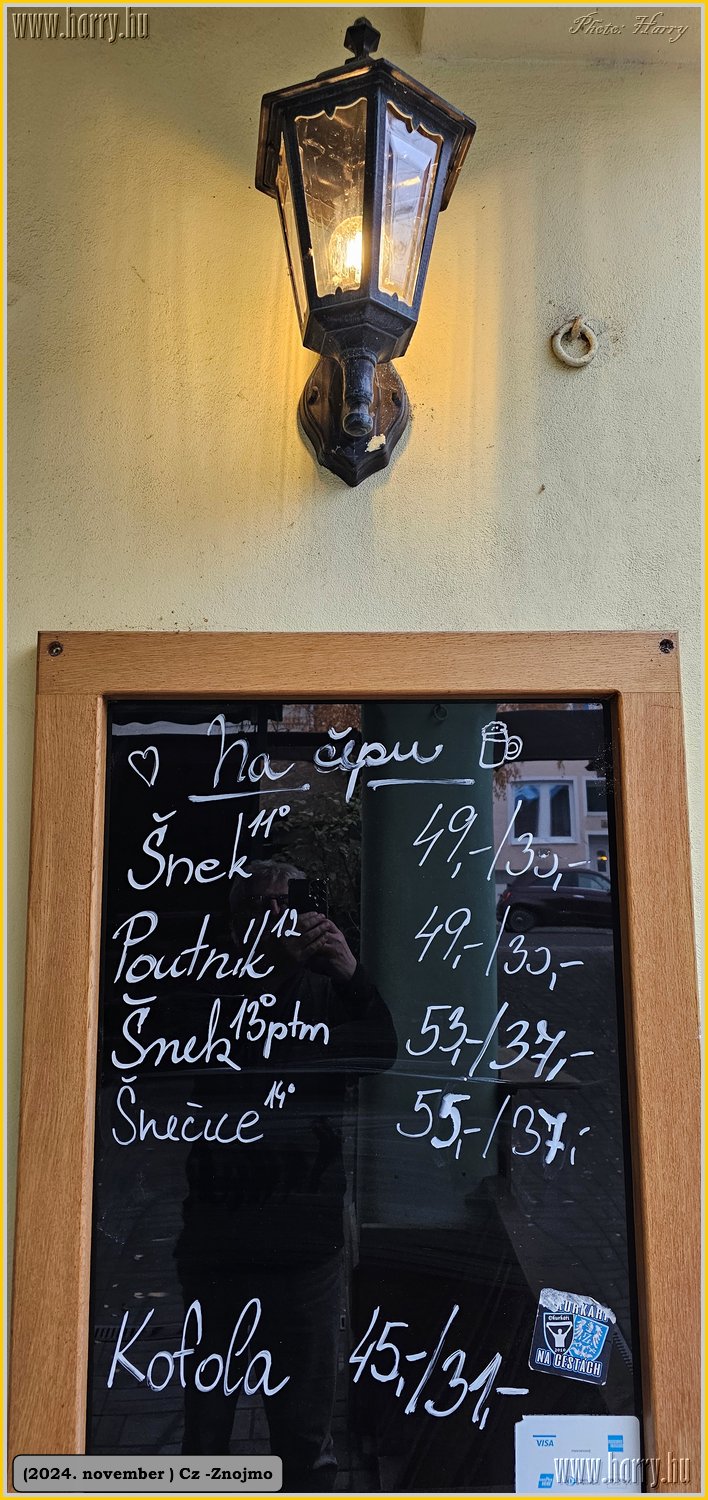 www.harry.hu
Photo: Harry
Na čepu
Šnek 11° 49,-/30,-
Poutník 12 49,-/30,-
Šnek 13° ptm 53,-/37,-
Šnečice 14° 55,-/37,-
Kofola 45,-/31,-
NA CESTÁCH
VISA
(2024. november ) Cz -Znojmo
www.harry.hu